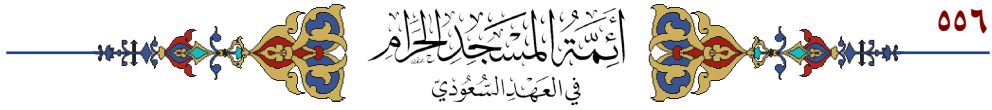 ٥٥٦
أَئِمَّةُ المَسْجِدِ الحَرَامِ
فِي العَهْدِ السُّعُودِيِّ